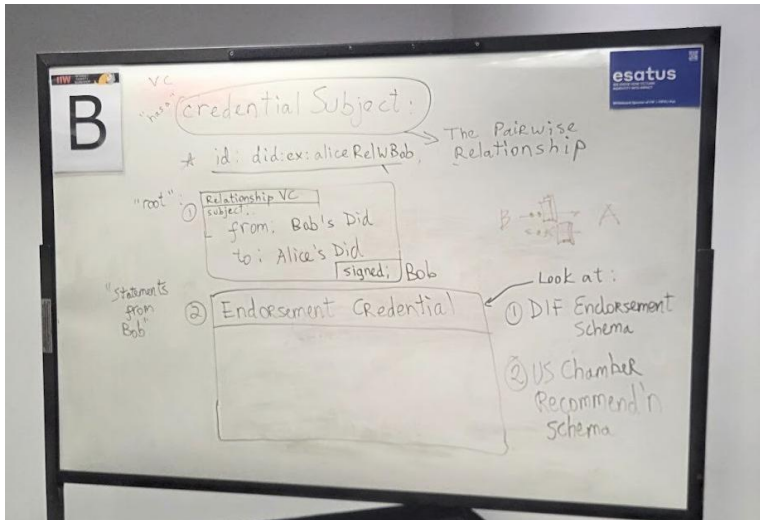 IIW
B
esatus
VC
credential Subject:
* id: did:ex:aliceRelWBob
The Pairwise
Relationship
"root":
① Relationship VC
subject..
from: Bob's Did
to: Alice's Did
signed: Bob
B
A
"Statements
from
Bob"
② Endorsement Credential
Look at:
① DIF Endorsement
Schema
② US Chamber
Recommend'n
Schema